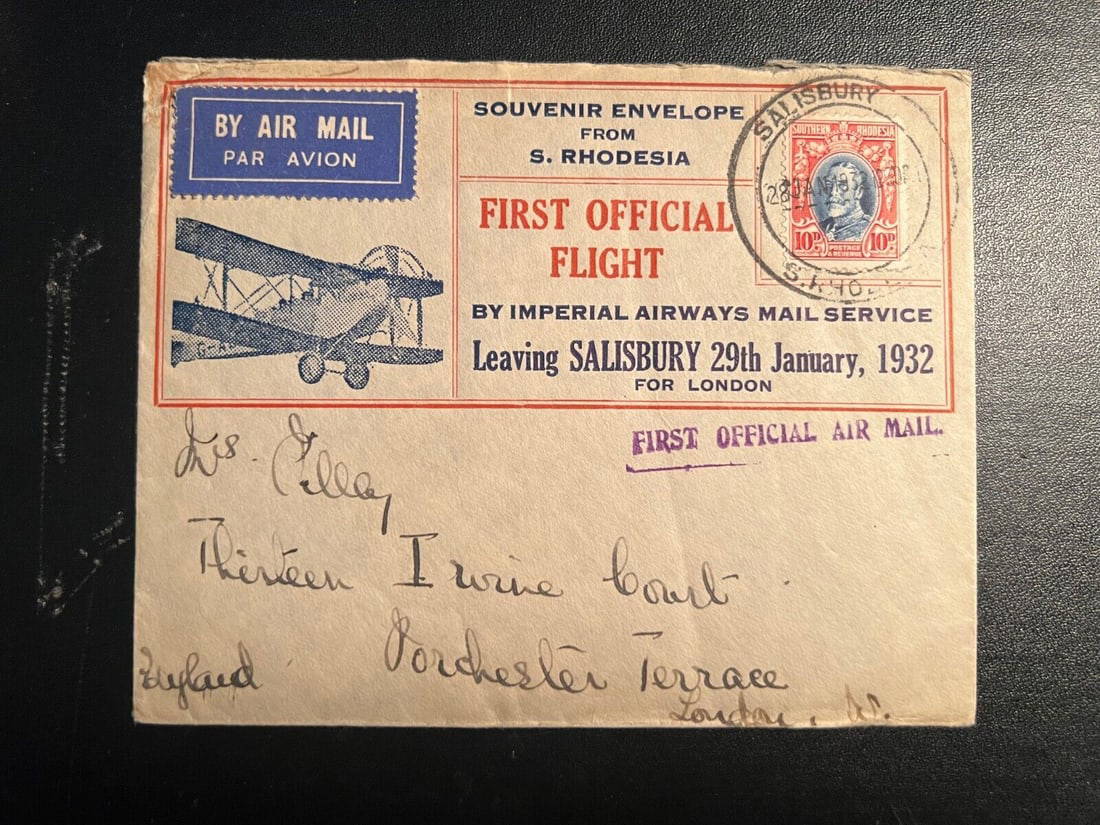 BY AIR MAIL
PAR AVION
SOUVENIR ENVELOPE
FROM
S. RHODESIA
FIRST OFFICIAL
FLIGHT
BY IMPERIAL AIRWAYS MAIL SERVICE
Leaving SALISBURY 29th January, 1932
FOR LONDON
SALISBURY
28 JAN
S. RHO
SOUTHERN RHODESIA
10D. 10D.
POSTAGE
& REVENUE
FIRST OFFICIAL AIR MAIL.
Thirteen Irvine Court
Porchester Terrace
London. W.
England